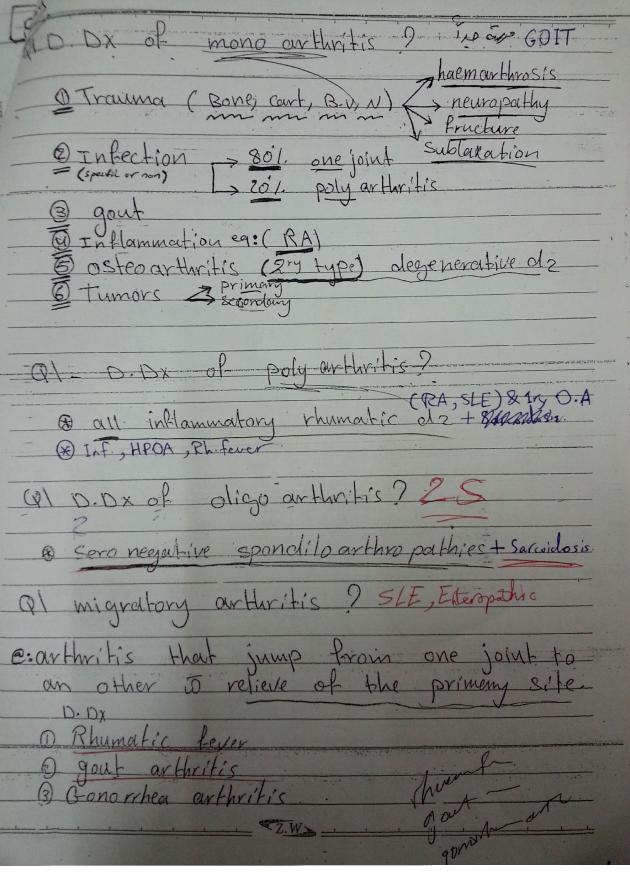 Q1 D.Dx of mono arthritis ? مهمة جداً GOIT
haemarthrosis
① Trauma ( Bone, Cart, B.V, N ) → neuropathy
fructure
Sublaxation
② Infection → 80% one joint
(specific or non) → 20% poly arthritis
③ gout
④ Inflammation eg: ( RA )
⑤ osteoarthritis (2ry type) degenerative dz
⑥ Tumors primary
secondary
Q1 - D.Dx of poly arthritis ?
(RA, SLE) & 1ry O.A
* all inflammatory rhumatic dz +
* Inf., HPOA, Rh. fever
Q1 D.Dx of oligo arthritis ? 2S
2
* Sero negative spondilo arthro pathies + Sarcoidosis
Q1 migratory arthritis ? SLE, Enteropathic
@: arthritis that jump from one joint to
an other c̄ relieve of the primemy site
D.Dx
① Rhumatic fever
② gout arthritis
③ Gonorrhea arthritis
gout
Z.W